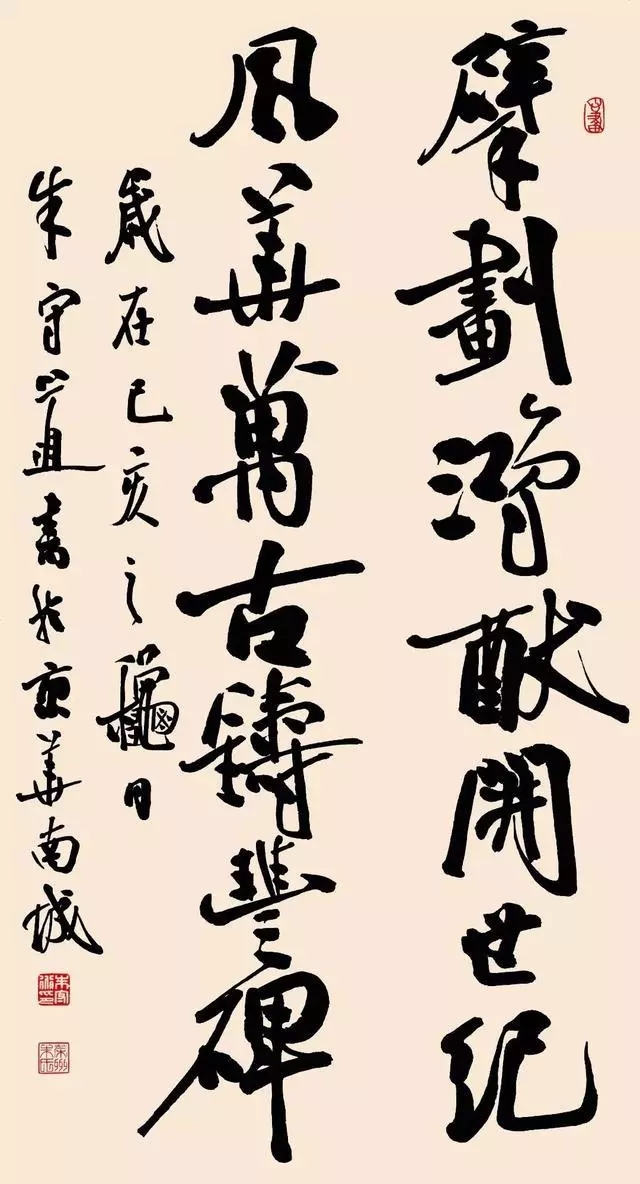 擘劃鴻猷開世紀
風華萬古鑄豐碑
歲在己亥之龝月
朱守道書於京華南城